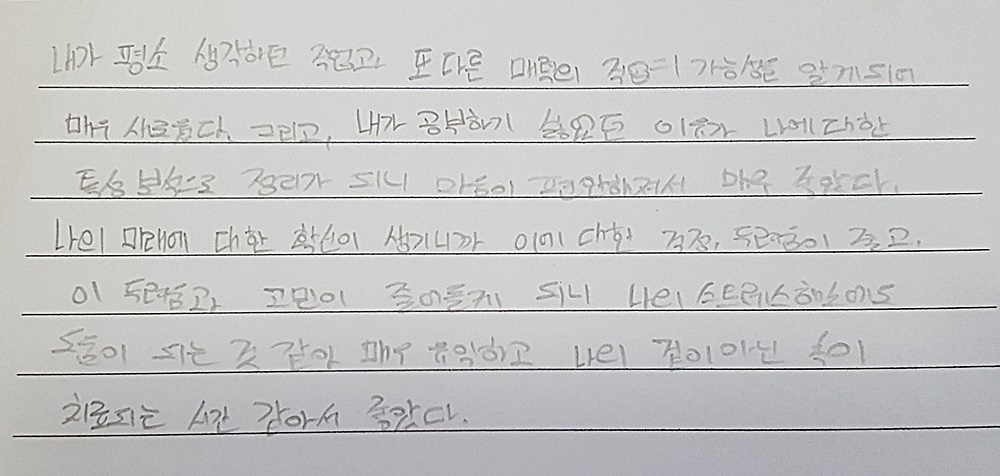 내가 평소 생각하던 직업과 또다른 매력의 직업의 가능성을 알게되어
매우 새로웠다. 그리고, 내가 공부하기 싫었던 이유가 나에대한
특성 분석으로 정리가 되니 마음이 편안해져서 매우 좋았다.
나의 미래에 대한 확신이 생기니까 이에 대한 걱정, 두려움이 줄고,
이 두려움과 고민이 줄어들게 되니 나의 스트레스해소에도
도움이 되는 것 같아 매우 유익하고 나의 겉이아닌 속이
치료되는 시간 같아서 좋았다.